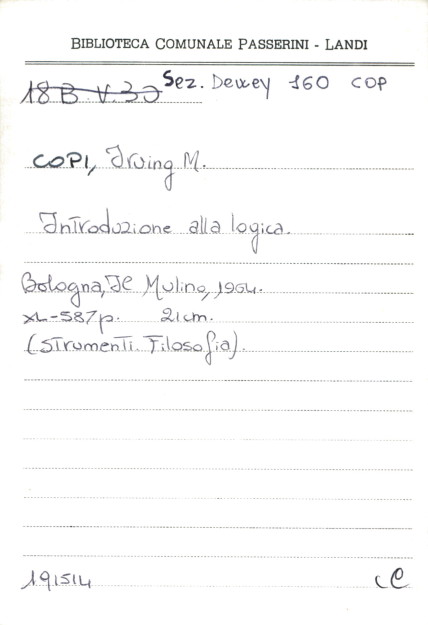 BIBLIOTECA COMUNALE PASSERINI - LANDI
18 B V.30 Sez. Dewey 160 COP
COPI, Irving M.
Introduzione alla logica.
Bologna, Il Mulino, 1964.
XL-587p. 21cm.
(Strumenti. Filosofia).
191514